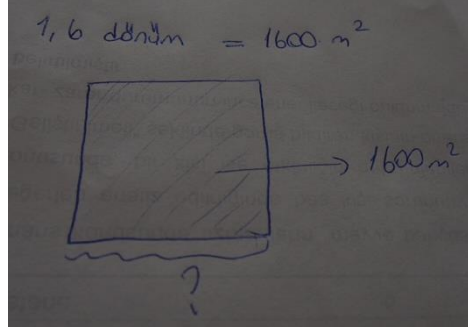 1,6 dönüm = 1600 m²
1600 m²
?